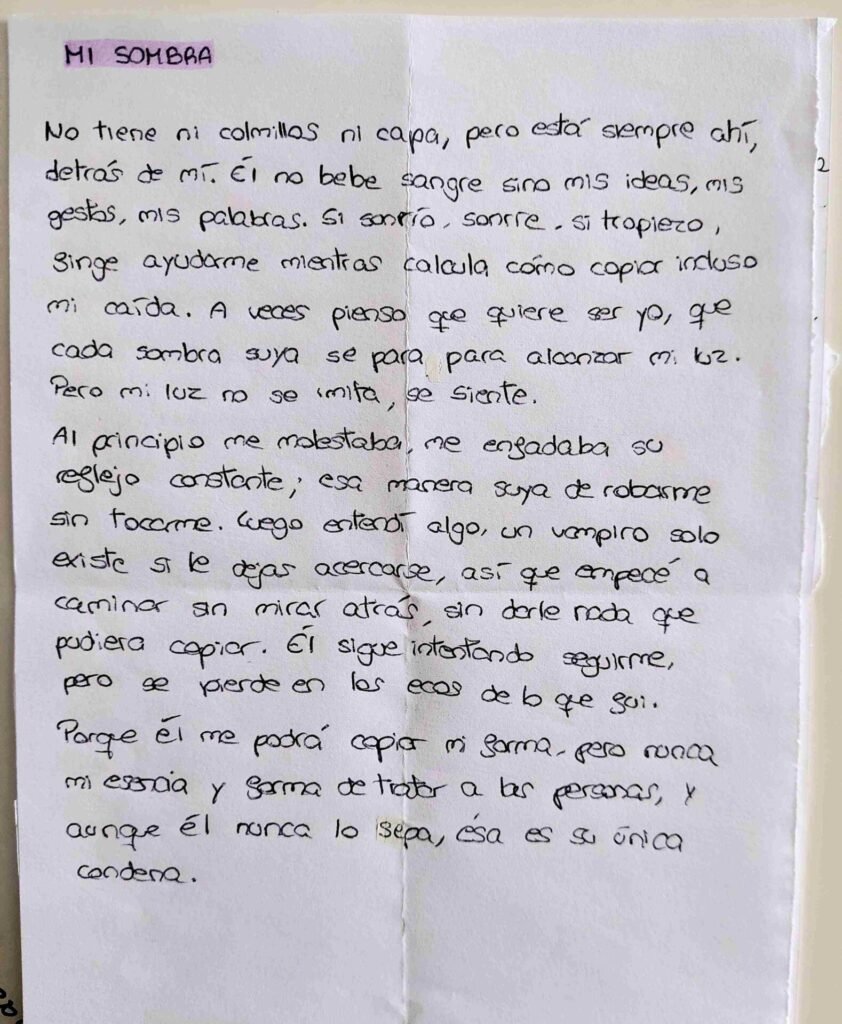 MI SOMBRA
No tiene ni colmillos ni capa, pero está siempre ahí,
detrás de mí. Él no bebe sangre sino mis ideas, mis
gestos, mis palabras. Si sonrío, sonríe. si tropiezo,
finge ayudarme mientras calcula cómo copiar incluso
mi caída. A veces pienso que quiere ser yo, que
cada sombra suya se para para alcanzar mi luz.
Pero mi luz no se imita, se siente.
Al principio me molestaba, me enfadaba su
reflejo constante, esa manera suya de robarme
sin tocarme. Luego entendí algo, un vampiro solo
existe si le dejas acercarse, así que empecé a
caminar sin mirar atrás, sin darle nada que
pudiera copiar. Él sigue intentando seguirme,
pero se pierde en los ecos de lo que fui.
Porque él me podrá copiar mi forma, pero nunca
mi esencia y forma de tratar a las personas, y
aunque él nunca lo sepa, ésa es su única
condena.
2